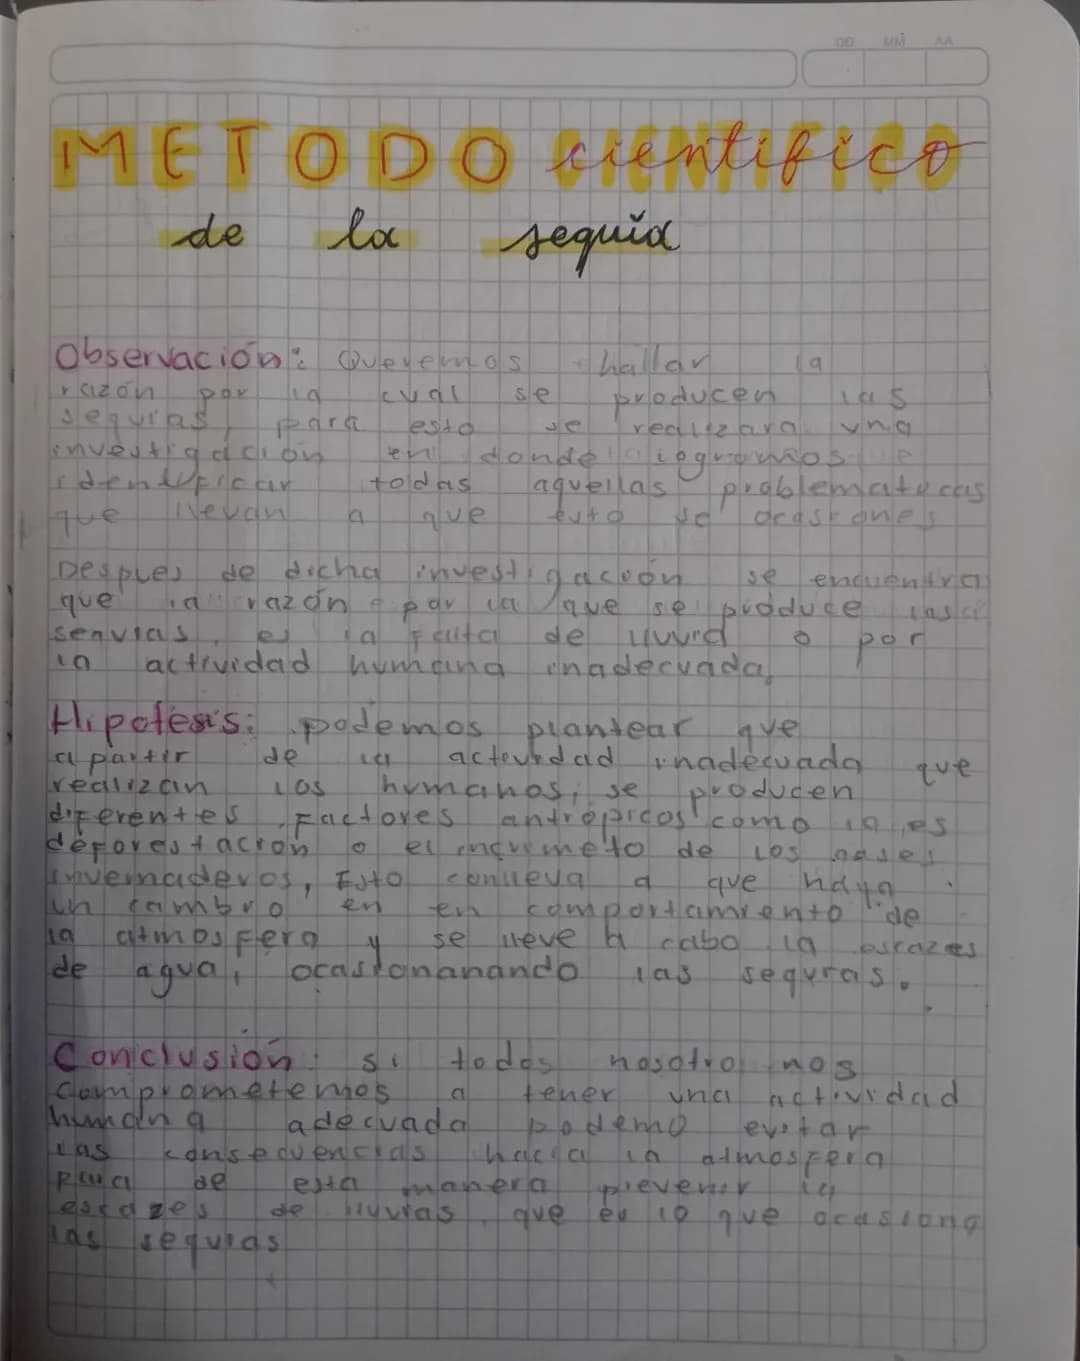 DD MM AA
METODO cientifico
de la sequía
Observación: Queremos hallar la
razón por la cual se producen las
sequias, para esto se realizara una
investigación en donde logramos
identificar todas aquellas problematicas
que llevan a que esto se ocasiones
Despues de dicha investigacion se encuentra
que la razón por la que se produce las
sequias, es la falta de lluvia o por
la actividad humana inadecuada,
Hipotesis: podemos plantear que
a partir de la actividad inadecuada que
realizan los humanos, se producen
diferentes factores antrópicos como la es
deforestacion o el incrumeto de los gases
invernaderos, Esto conlleva a que haya
un cambio en en comportamiento de
la atmosfera y se lleve a cabo la escazes
de agua, ocasionanando las sequias.
Conclusión: si todos nosotro nos
comprometemos a tener una actividad
humana adecuada podemo evitar
las consecuencias hacia la atmosfera
para de esta manera prevenir la
escazes de lluvias, que es lo que ocasiona
las sequias